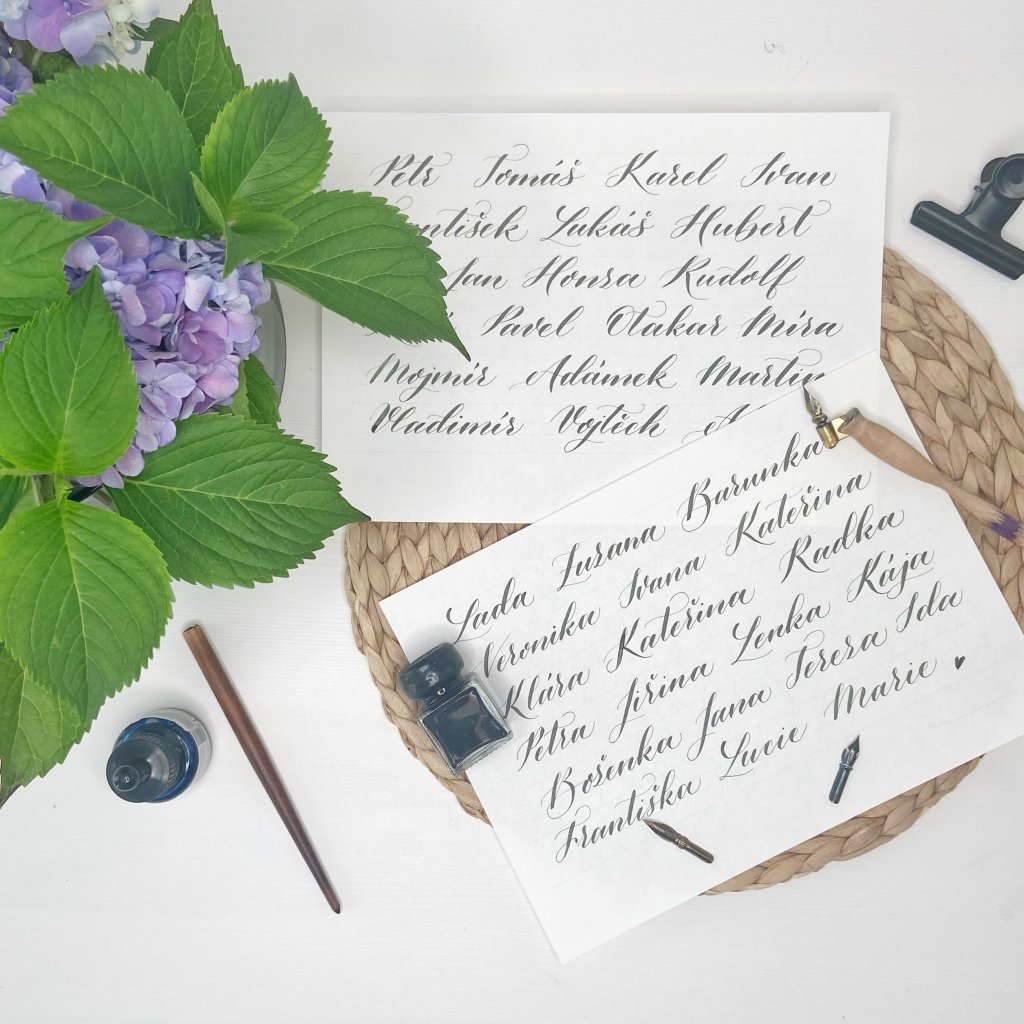 Petr Tomáš Karel Ivan
František Lukáš Hubert
Jan Honza Rudolf
Pavel Otakar Míra
Mojmír Adámek Martin
Vladimír Vojtěch
Lada Zuzana Barunka
Veronika Ivana Kateřina
Klára Kateřina Radka
Petra Jiřina Lenka Kája
Boženka Jana Tereza Ida
Františka Lucie Marie